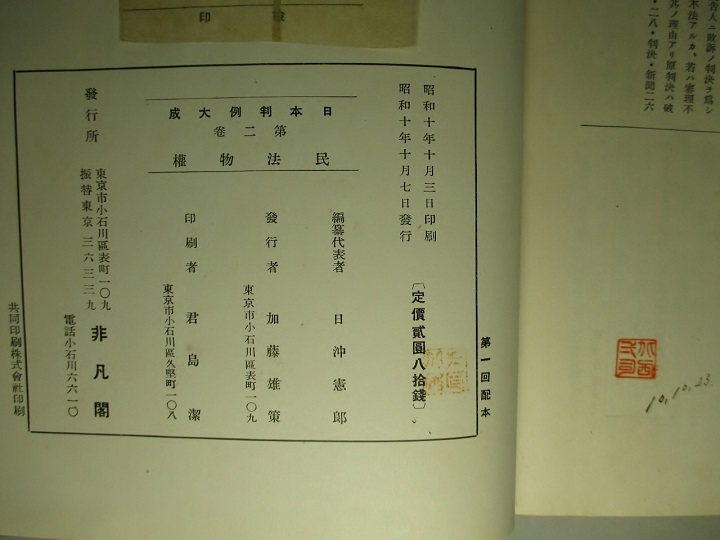 告人ニ敗訴ノ判決ヲ爲シ
不法アルカ、若ハ審理不
其ノ理由アリ原判決ハ破
・二八・判決・新聞二六
10,10,23.
檢印
第一回配本
昭和十年十月三日印刷
昭和十年十月七日發行
〔定價貳圓八拾錢〕
日本判例大成
第二卷
民法物權
編纂代表者 日沖憲郎
發行者 加藤雄策
東京市小石川區表町一〇九
印刷者 君島潔
東京市小石川區久堅町一〇八
發行所
東京市小石川區表町一〇九
振替東京三六二三九
非凡閣
電話小石川六六一〇
共同印刷株式會社印刷